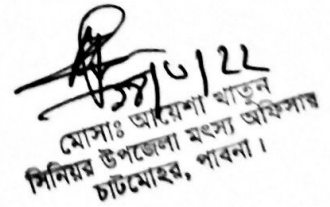 মোসাঃ আয়েশা খাতুন
সিনিয়র উপজেলা মৎস্য অফিসার
চাটমোহর, পাবনা।